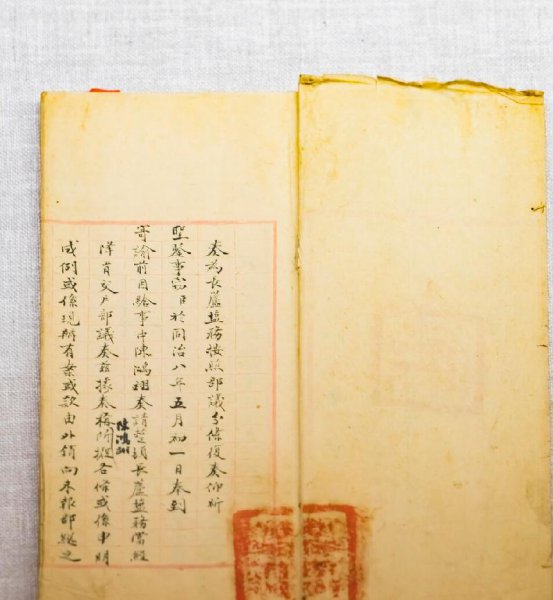 奏為長蘆塩務按照部議分條復奏仰祈
聖鑒事竊臣於同治八年五月初一日奉到
寄諭前因給事中陳鴻翊奏請整頓長蘆塩務當經
降旨交戶部議奏茲據奏稱陳鴻翊所擬各條或係申明
成例或係現辦有案或款由外銷向未報部總之